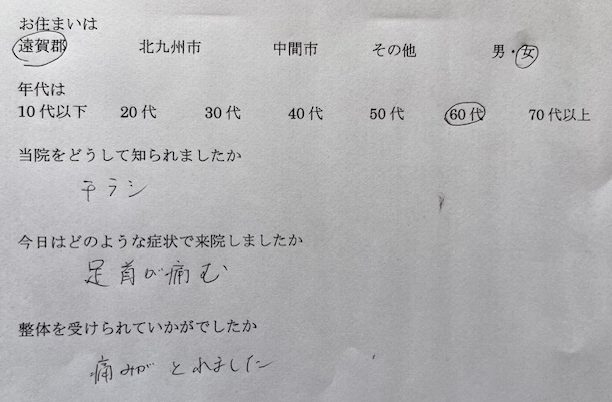 お住まいは
遠賀郡 北九州市 中間市 その他 男・女
年代は
10代以下 20代 30代 40代 50代 60代 70代以上
当院をどうして知られましたか
チラシ
今日はどのような症状で来院しましたか
足首が痛む
整体を受けられていかがでしたか
痛みがとれました